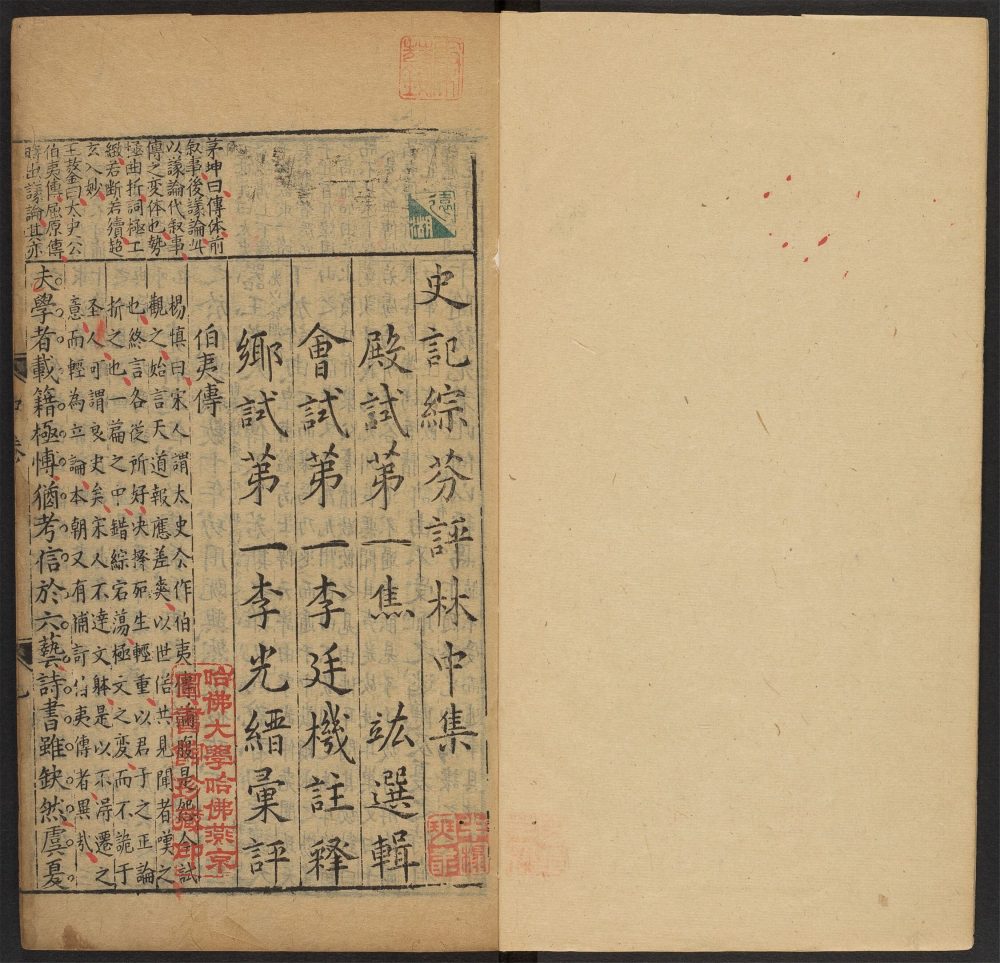 史記綜芬評林中集
殿試第一焦竑選輯
會試第一李廷機註釋
鄉試第一李光縉彙評
伯夷傳
楊慎曰宋人謂太史公作伯夷傳滿腹是怨今試
觀之始言天道報應差爽以世俗共見聞者嘆之
也終言各從所好决擇死生輕重以君子之正論
折之也一篇之中錯綜宕蕩極文之变而不詭于
圣人可謂良史矣宋人不達文躰是以不得遷之
意而輕為立論本朝又有補訂伯夷傳者異哉
夫學者載籍極愽猶考信於六藝詩書雖缺然虞夏
茅坤曰傳体前
叙事後議論此
以議論代叙事
傳之变体也勢
極曲折詞極工
緻若断若續超
玄入妙
王鏊曰太史公
伯夷傳屈原傳
時出議論其亦
哈佛大學哈佛燕京
圖書館珍藏印